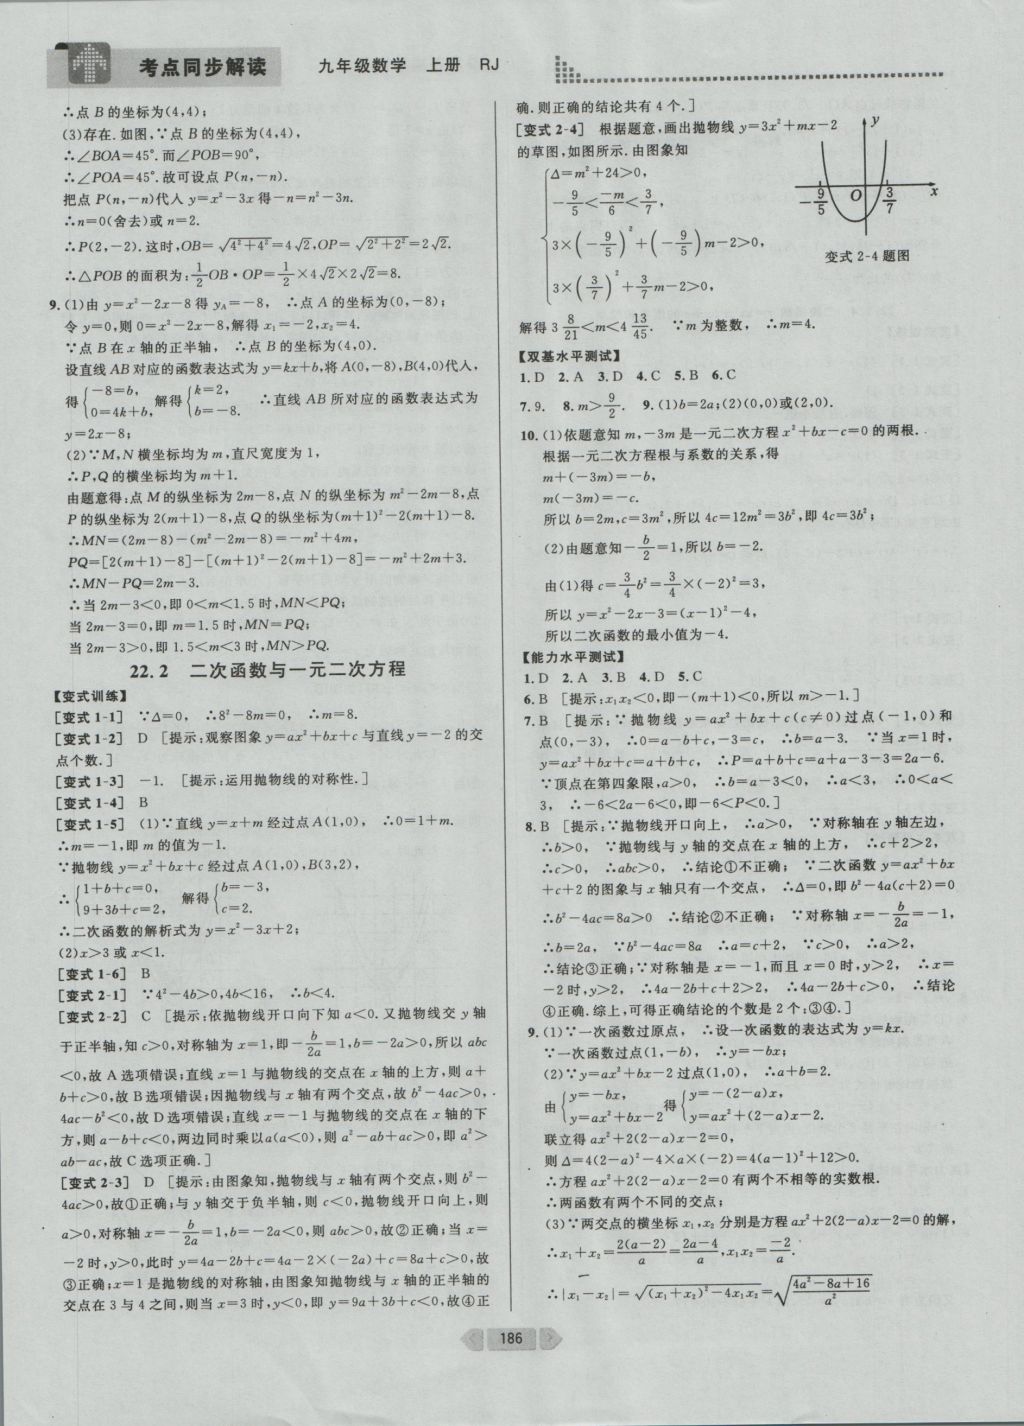 考点同步解读 九年级数学 上册 RJ
∴点B的坐标为(4,4);
(3)存在.如图,∵点B的坐标为(4,4),
∴∠BOA=45°.而∠POB=90°,
∴∠POA=45°.故可设点P(n,-n).
把点P(n,-n)代人y=x²-3x得-n=n²-3n.
∴n=0(舍去)或n=2.
∴P(2,-2).这时,OB=√(4²+4²)=4√2,OP=√(2²+2²)=2√2.
∴△POB的面积为:1/2 OB·OP=1/2×4√2×2√2=8.
9.(1)由y=x²-2x-8得yA=-8, ∴点A的坐标为(0,-8);
令y=0,则0=x²-2x-8,解得x₁=-2,x₂=4.
∵点B在x轴的正半轴, ∴点B的坐标为(4,0).
设直线AB对应的函数表达式为y=kx+b,将A(0,-8),B(4,0)代人,
得{-8=b, 0=4k+b, 解得{k=2, b=-8. ∴直线AB所对应的函数表达式为
y=2x-8;
(2)∵M,N横坐标均为m,直尺宽度为1,
∴P,Q的横坐标均为m+1.
由题意得:点M的纵坐标为2m-8,点N的纵坐标为m²-2m-8,点
P的纵坐标为2(m+1)-8,点Q的纵坐标为(m+1)²-2(m+1)-8.
∴MN=(2m-8)-(m²-2m-8)=-m²+4m,
PQ=[2(m+1)-8]-[(m+1)²-2(m+1)-8]=-m²+2m+3.
∴MN-PQ=2m-3.
∴当2m-3<0,即0<m<1.5时,MN<PQ;
当2m-3=0,即m=1.5时,MN=PQ;
当2m-3>0,即1.5<m<3时,MN>PQ.
22.2 二次函数与一元二次方程
【变式训练】
[变式1-1] ∵Δ=0, ∴8²-8m=0, ∴m=8.
[变式1-2] D [提示:观察图象y=ax²+bx+c与直线y=-2的交
点个数.]
[变式1-3] -1. [提示:运用抛物线的对称性.]
[变式1-4] B
[变式1-5] (1)∵直线y=x+m经过点A(1,0), ∴0=1+m.
∴m=-1,即m的值为-1.
∵抛物线y=x²+bx+c经过点A(1,0),B(3,2),
∴{1+b+c=0, 9+3b+c=2, 解得{b=-3, c=2.
∴二次函数的解析式为y=x²-3x+2;
(2)x>3或x<1.
[变式1-6] B
[变式2-1] ∵4²-4b>0,4b<16, ∴b<4.
[变式2-2] C [提示:依抛物线开口向下知a<0.又抛物线交y轴
于正半轴,知c>0,对称轴为x=1,即-b/2a=1,b=-2a>0,所以abc
<0,故A选项错误;直线x=1与抛物线的交点在x轴的上方,则a+
b+c>0,故B选项错误;因抛物线与x轴有两个交点,故b²-4ac>0,
4ac-b²<0,故D选项错误;直线x=-1与抛物线的交点在x轴的下
方,则a-b+c<0,两边同时乘以a(a<0),则a²-ab+ac>0,即a²>
ab-ac,故C选项正确.]
[变式2-3] D [提示:由图象知,抛物线与x轴有两个交点,则b²-
4ac>0,故①正确;与y轴交于负半轴,则c<0,抛物线开口向上,则
a>0,对称轴x=-b/2a=1,b=-2a<0,则abc>0,故②正确;当x=
-2时,y>0,此时y=4a-2b+c=4a-2×(-2a)+c=8a+c>0,故
③正确;x=1是抛物线的对称轴,由图象知抛物线与x轴的正半轴的
交点在3与4之间,则当x=3时,y<0,即y=9a+3b+c<0,故④正
确.则正确的结论共有4个.]
[变式2-4] 根据题意,画出抛物线y=3x²+mx-2
的草图,如图所示.由图象知
{Δ=m²+24>0,
-9/5<-m/6<3/7,
3×(-9/5)²+(-9/5)m-2>0,
3×(3/7)²+3/7 m-2>0,
y
-9/5 O 3/7 x
变式2-4题图
解得3 8/21<m<4 13/45. ∵m为整数, ∴m=4.
【双基水平测试】
1.D 2.A 3.D 4.C 5.B 6.C
7.9. 8.m>9/2. 9.(1)b=2a;(2)(0,0)或(2,0).
10.(1)依题意知m,-3m是一元二次方程x²+bx-c=0的两根.
根据一元二次方程根与系数的关系,得
m+(-3m)=-b,
m(-3m)=-c.
所以b=2m,c=3m²,所以4c=12m²=3b²,即4c=3b²;
(2)由题意知-b/2=1,所以b=-2.
由(1)得c=3/4 b²=3/4×(-2)²=3,
所以y=x²-2x-3=(x-1)²-4,
所以二次函数的最小值为-4.
【能力水平测试】
1.D 2.A 3.B 4.D 5.C
6.B [提示:x₁x₂<0,即-(m+1)<0,所以m>-1.]
7.B [提示:∵抛物线y=ax²+bx+c(c≠0)过点(-1,0)和
点(0,-3), ∴0=a-b+c,-3=c, ∴b=a-3. ∵当x=1时,
y=ax²+bx+c=a+b+c, ∴P=a+b+c=a+a-3-3=2a-6.
∵顶点在第四象限,a>0, ∴b=a-3<0, ∴a<3, ∴0<a<
3, ∴-6<2a-6<0,即-6<P<0.]
8.B [提示:∵抛物线开口向上, ∴a>0, ∵对称轴在y轴左边,
∴b>0, ∵抛物线与y轴的交点在x轴的上方, ∴c+2>2,
∴c>0, ∴abc>0, ∴结论①不正确; ∵二次函数y=ax²+bx
+c+2的图象与x轴只有一个交点, ∴Δ=0,即b²-4a(c+2)=0
∴b²-4ac=8a>0 ∴结论②不正确; ∵对称轴x=-b/2a=-1,
∴b=2a, ∵b²-4ac=8a ∴a=c+2, ∵c>0, ∴a>2,
∴结论③正确;∵对称轴是x=-1,而且x=0时,y>2, ∴x=
-2时,y>2, ∴4a-2b+c+2>2, ∴4a-2b+c>0, ∴结论
④正确.综上,可得正确结论的个数是2个:③④.]
9.(1)∵一次函数过原点, ∴设一次函数的表达式为y=kx.
∵一次函数过点(1,-b), ∴y=-bx;
(2)∵y=ax²+bx-2过点(1,0), ∴a+b=2.
由{y=-bx, y=ax²+bx-2得{y=-(2-a)x, y=ax²+(2-a)x-2.
联立得ax²+2(2-a)x-2=0,
则Δ=4(2-a)²-4×a×(-2)=4(a-1)²+12>0.
∴方程ax²+2(2-a)x-2=0有两个不相等的实数根.
∴两函数有两个不同的交点;
(3)∵两交点的横坐标x₁,x₂分别是方程ax²+2(2-a)x-2=0的解,
∴x₁+x₂=2(a-2)/a=2a-4/a,x₁x₂=-2/a.
∴|x₁-x₂|=√((x₁+x₂)²-4x₁x₂)=√(4a²-8a+16/a²)
186